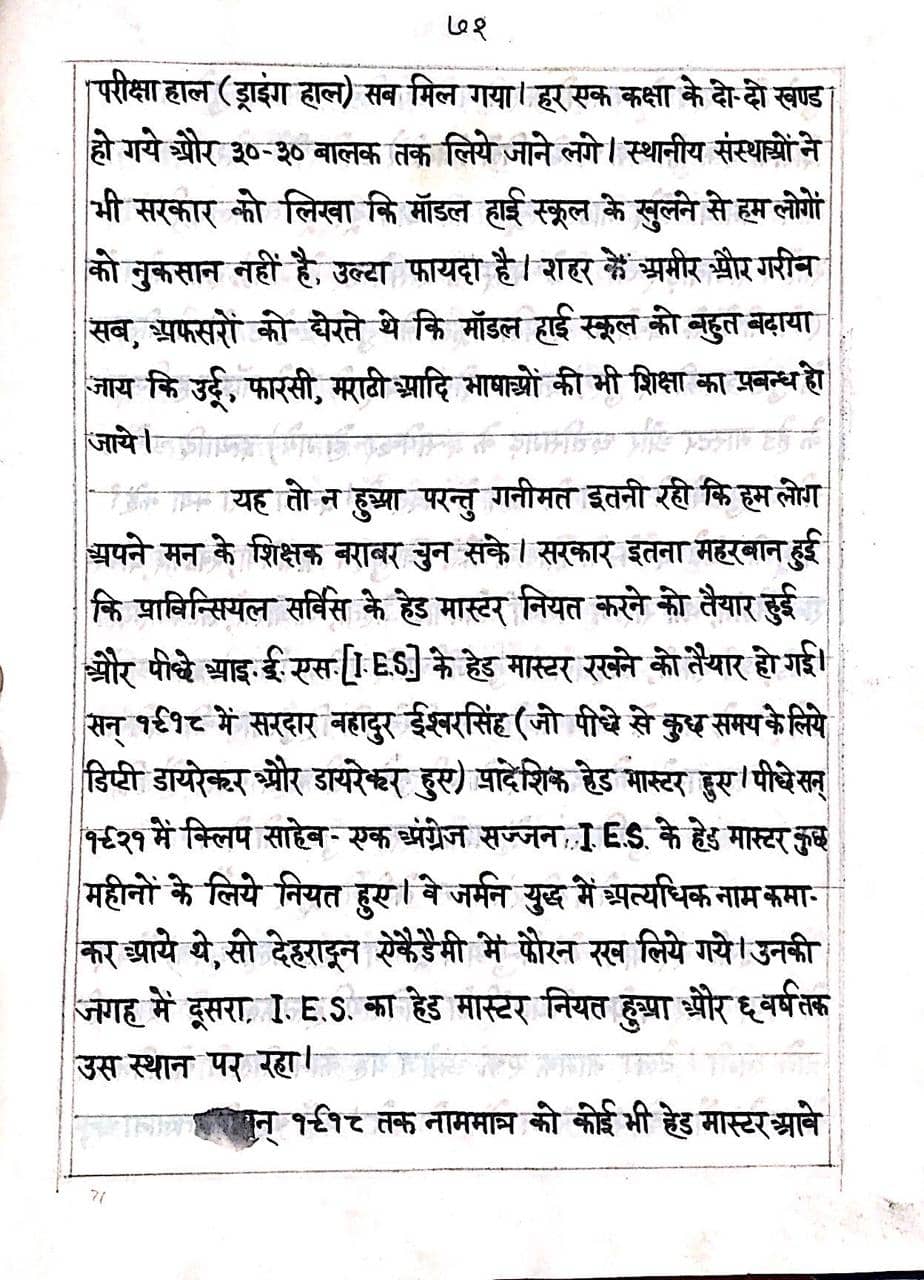 ७१
परीक्षा हाल (ड्राइंग हाल) सब मिल गया। हर एक कक्षा के दो-दो खण्ड
हो गये और ३०-३० बालक तक लिये जाने लगे। स्थानीय संस्थाओं ने
भी सरकार को लिखा कि मॉडल हाई स्कूल के खुलने से हम लोगों
को नुकसान नहीं है, उल्टा फायदा है। शहर के अमीर और गरीब
सब, अफसरों को घेरते थे कि मॉडल हाई स्कूल को बहुत बढ़ाया
जाय कि उर्दू, फारसी, मराठी आदि भाषाओं की भी शिक्षा का प्रबन्ध हो
जाये।
यह तो न हुआ परन्तु गनीमत इतनी रही कि हम लोग
अपने मन के शिक्षक बराबर चुन सके। सरकार इतना महरबान हुई
कि प्राविन्सियल सर्विस के हेड मास्टर नियत करने को तैयार हुई
और पीछे आइ. ई. एस. [I.E.S.] के हेड मास्टर रखने को तैयार हो गई।
सन् १९१८ में सरदार बहादुर ईश्वरसिंह (जो पीछे से कुछ समय के लिये
डिप्टी डायरेक्टर और डायरेक्टर हुए) प्रादेशिक हेड मास्टर हुए। पीछे सन्
१९२१ में क्लिप साहेब - एक अंग्रेज सज्जन, I.E.S. के हेड मास्टर कुछ
महीनों के लिये नियत हुए। वे जर्मन युद्ध में अत्यधिक नाम कमा-
कर आये थे, सो देहरादून ऐकैडैमी में फौरन रख लिये गये। उनकी
जगह में दूसरा I.E.S. का हेड मास्टर नियत हुआ और ६ वर्ष तक
उस स्थान पर रहा।
सन् १९१८ तक नाममात्र को कोई भी हेड मास्टर आवे
71